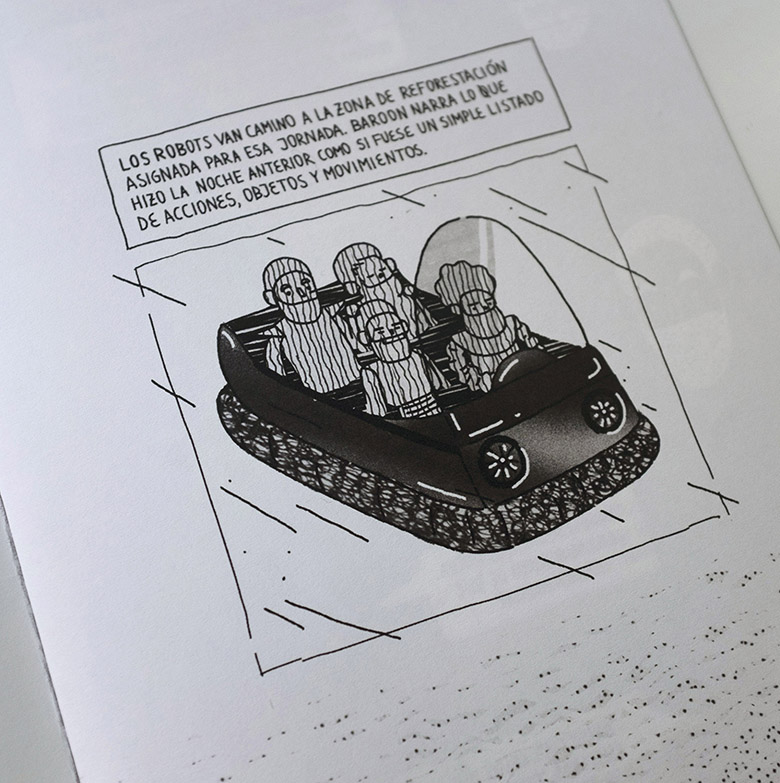 LOS ROBOTS VAN CAMINO A LA ZONA DE REFORESTACIÓN
ASIGNADA PARA ESA JORNADA. BAROON NARRA LO QUE
HIZO LA NOCHE ANTERIOR COMO SI FUESE UN SIMPLE LISTADO
DE ACCIONES, OBJETOS Y MOVIMIENTOS.